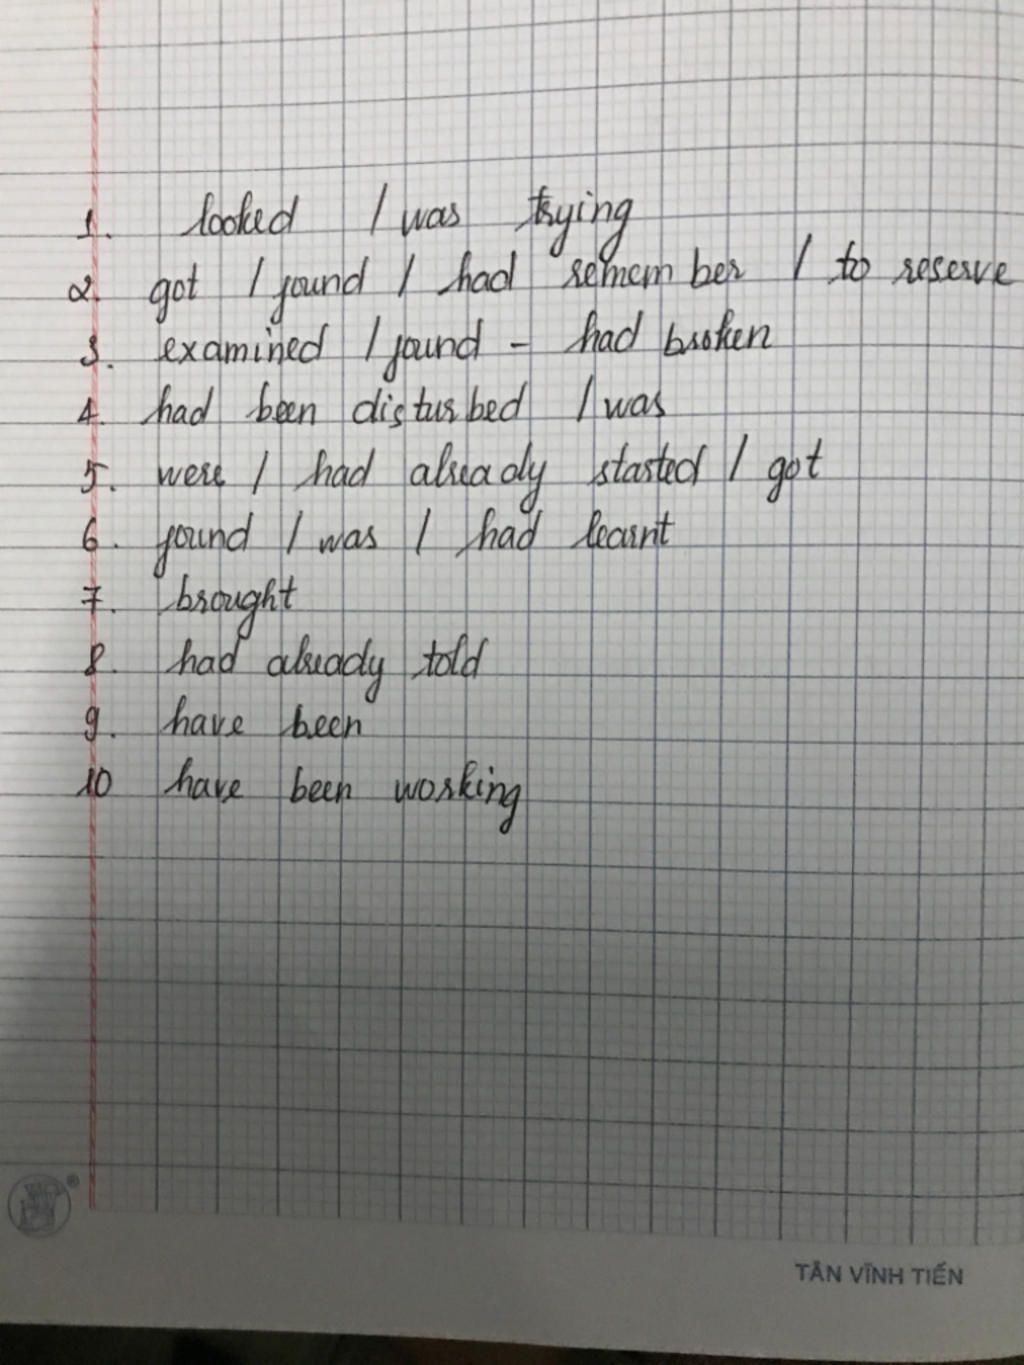 1. looked / was trying
2. got / found / had remember / to reserve
3. examined / found - had broken
4. had been disturbed / was
5. were / had already started / got
6. found / was / had learnt
7. brought
8. had already told
9. have been
10 have been working
®
TÂN VĨNH TIẾN